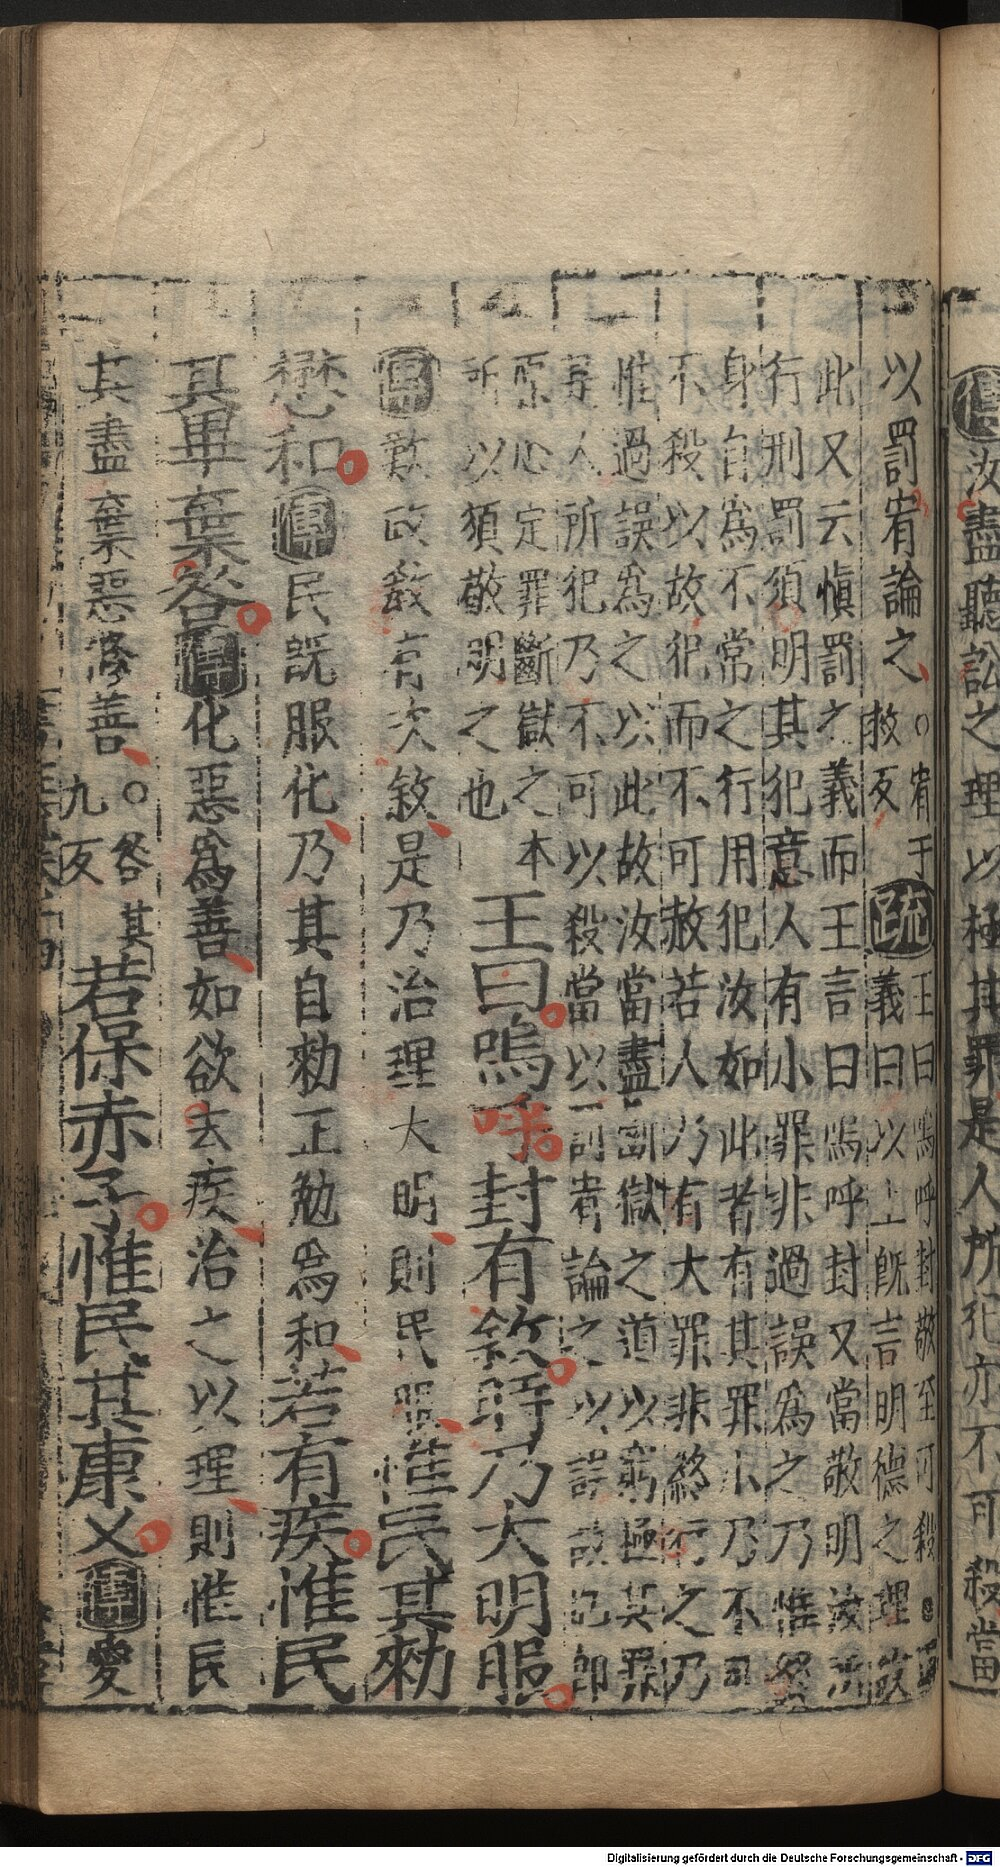 汝盡聽訟之理以極其罪是人所犯亦不可殺當
以罰宥論之
○宥于
救反
疏
王曰嗚呼封敬至可殺
義曰以上既言明德之理故
此又云慎罰之義而王言曰嗚呼封又當敬明汝所
行刑罰須明其犯意人有小罪非過誤為之乃惟終
身自為不常之行用犯汝如此者有其罪小乃不可
不殺以故犯而不可赦若人乃有大罪非終行之乃
惟過誤為之以此故汝當盡斷獄之道以窮極其罪
是人所犯乃不可以殺當以罰宥論之以誤故也即
原心定罪斷獄之本
所以須敬明之也
王曰嗚呼封有敘時乃大明服
傳歎政教有次敘是乃治理大明則民服惟民其勑
懋和傳民既服化乃其自勑正勉為和若有疾惟民
其畢棄咎傳化惡為善如欲去疾治之以理則惟民
其盡棄惡修善
○咎其
九反
若保赤子惟民其康乂傳愛
Digitalisierung gefördert durch die Deutsche Forschungsgemeinschaft - DFG